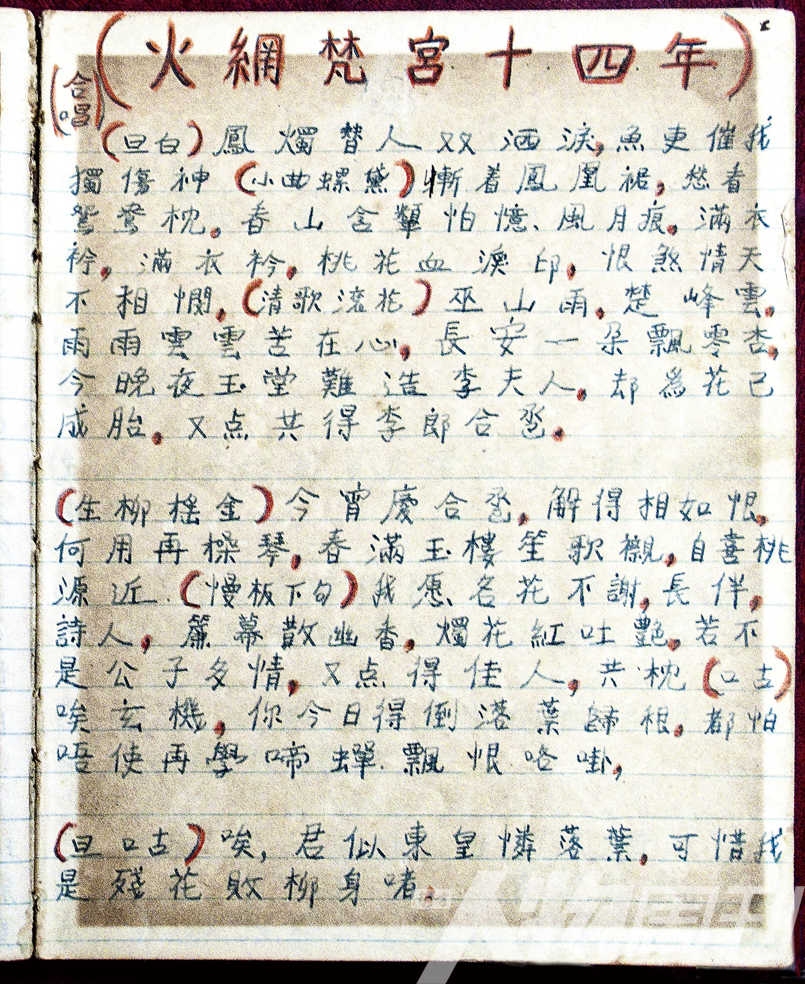 (火網梵宮十四年)
(合唱)
(旦白)鳳燭替人双洒淚,魚更催我
獨傷神(小曲螺黛)慚着鳳凰裙,愁看
鴛鴦枕,春山含顰怕憶、風月痕,滿衣
衿,滿衣衿,桃花血淚印,恨煞情天
不相憫,(清歌滾花)巫山雨,楚峰雲,
雨雨雲雲苦在心,長安一朵飄零杏,
今晚夜玉堂難造李夫人,却為花已
成胎,又点共得李郎合卺。
(生柳搖金)今宵慶合卺,解得相如恨,
何用再操琴,春滿玉樓笙歌襯,自喜桃
源近.(慢板下句)我愿名花不謝,長伴,
詩人,簾幕散幽香,燭花紅吐艷,若不
是公子多情,又点得佳人,共枕(口古)
唉玄機,你今日得倒落葉歸根,都怕
唔使再學啼蟬飄恨咯啩,
(旦口古)唉,君似東皇憐落葉,可惜我
是殘花敗柳身啫.